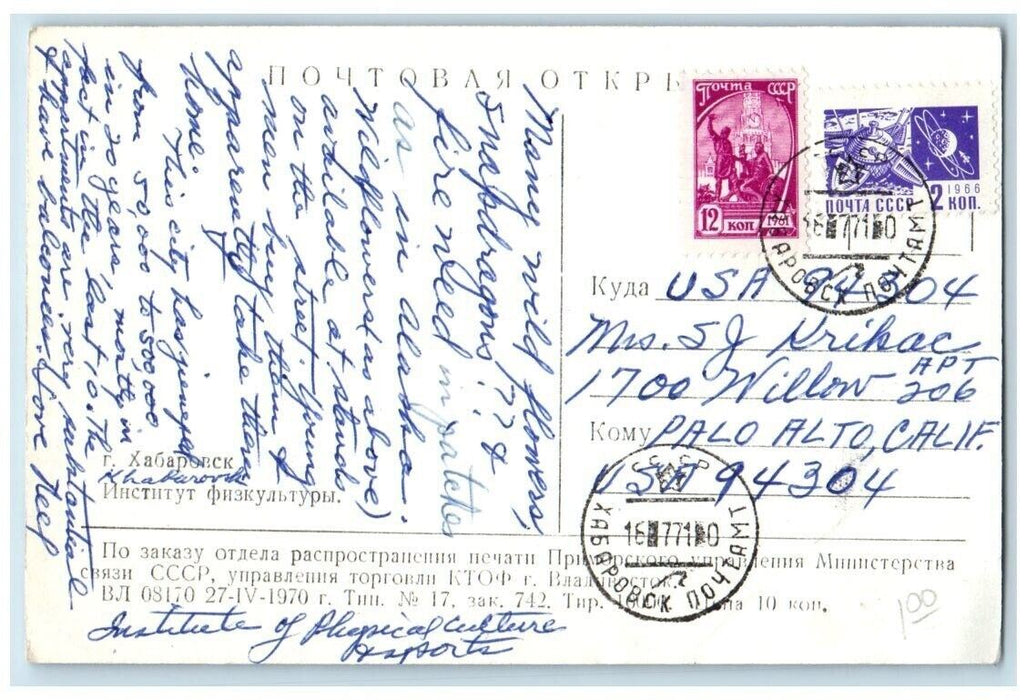 ПОЧТОВАЯ ОТКРЫ
Почта СССР
12 КОП 1961
1966
ПОЧТА СССР 2 КОП.
СССР
16 7 71
ХАБАРОВСК ПОЧТАМТ
Many wild flowers,
Snapdragons ?? &
fire weed in patches
as in alaska.
Wildflowers (as above)
available at stands
on the street. Young
men buy them &
apparently take them
home.
This city has jumped
from 50,000 to 500,000
in 20 years, mostly in
fact in the last 10. The
appartments are very substantial
& have balconies. Love
Куда USA 94304
Mrs. S J Krikac
1700 Willow APT 206
Кому PALO ALTO, CALIF.
USA 94304
г. Хабаровск
Khabarovsk
Институт физкультуры.
СССР
16 7 71
ХАБАРОВСК ПОЧТАМТ
По заказу отдела распространения печати Приморского управления Министерства
связи СССР, управления торговли КТОФ г. Владивосток.
ВЛ 08170 27-IV-1970 г. Тип. № 17. зак. 742. Тир. Цена 10 коп.
Institute of Physical Culture
& sports
1.00